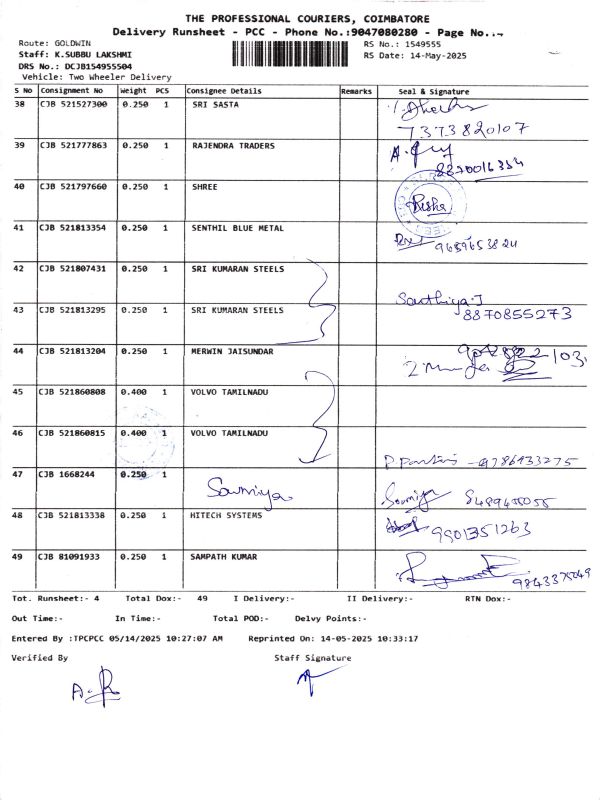 THE PROFESSIONAL COURIERS, COIMBATORE
Delivery Runsheet - PCC - Phone No.:9047080280 - Page No.
Route: GOLDWIN RS No.: 1549555
Staff: K.SUBBU LAKSHMI RS Date: 14-May-2025
DRS No.: DCJB154955504
Vehicle: Two Wheeler Delivery
S No Consignment No Weight PCS Consignee Details Remarks Seal & Signature
38 CJB 521527300 0.250 1 SRI SASTA
7373820107
39 CJB 521777863 0.250 1 RAJENDRA TRADERS
8870016354
40 CJB 521797660 0.250 1 SHREE
Risha
41 CJB 521813354 0.250 1 SENTHIL BLUE METAL
9689653824
42 CJB 521807431 0.250 1 SRI KUMARAN STEELS
Santhiya.J
43 CJB 521813295 0.250 1 SRI KUMARAN STEELS 8870855273
44 CJB 521813204 0.250 1 MERWIN JAISUNDAR
45 CJB 521860808 0.400 1 VOLVO TAMILNADU
46 CJB 521860815 0.400 1 VOLVO TAMILNADU
9786933275
47 CJB 1668244 0.250 1 Soumiya Soumiya
48 CJB 521813338 0.250 1 HITECH SYSTEMS 9901351263
49 CJB 81091933 0.250 1 SAMPATH KUMAR
9843375049
Tot. Runsheet:- 4 Total Dox:- 49 I Delivery:- II Delivery:- RTN Dox:-
Out Time:- In Time:- Total POD:- Delvy Points:-
Entered By :TPCPCC 05/14/2025 10:27:07 AM Reprinted On: 14-05-2025 10:33:17
Verified By Staff Signature